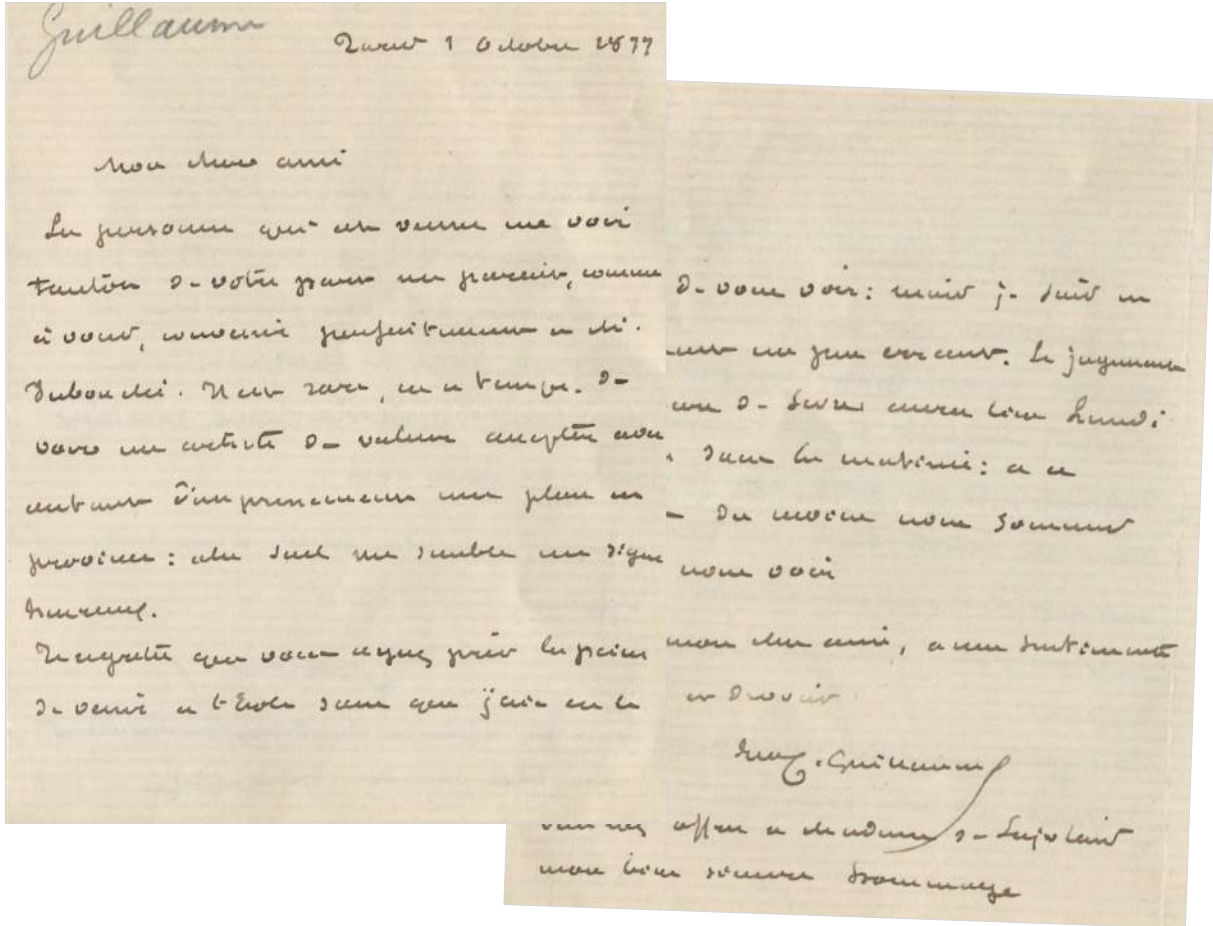 Guillaume
Paris 1 Octobre 1877
Mon cher ami
La personne qui est venue me voir
tantôt de votre part me parait, comme
à vous, convenir parfaitement a M.
Dubouché. Il est rare, en ce temps, de
voir un artiste de valeur accepter avec
autant d'empressement une place en
province : cela seul me semble un signe
heureux.
Je regrette que vous ayez pris la peine
de venir a l'Ecole sans que j'aie eu le
de vous voir : mais je suis en
un peu errant. Le jugement
de Sèvres aura lieu Lundi
dans la matinée : a ce
du moins nous sommes
nous voir
mon cher ami, a mes sentiments
et dévoués
Eug. Guillaume
offrir a Madame de
mon bien sincère hommage